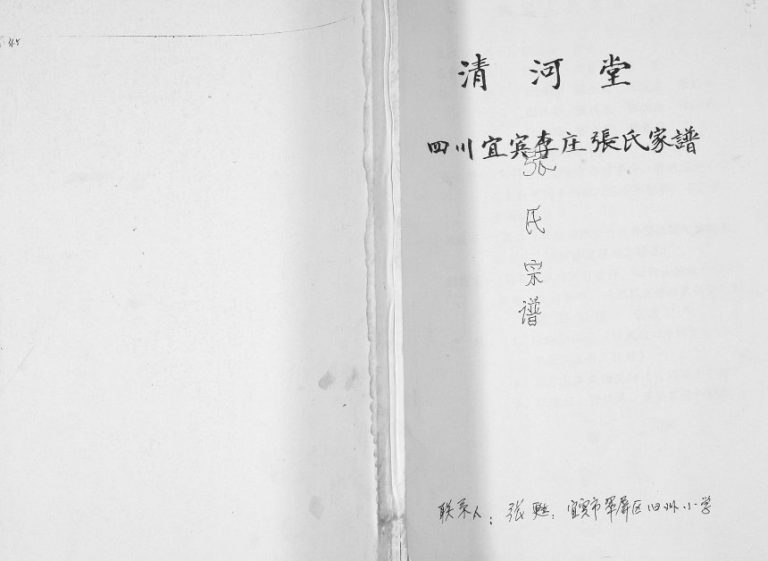 清河堂
四川宜宾李庄張氏家譜
張氏宗譜
联系人：张 宜宾市翠屏区旧州小学